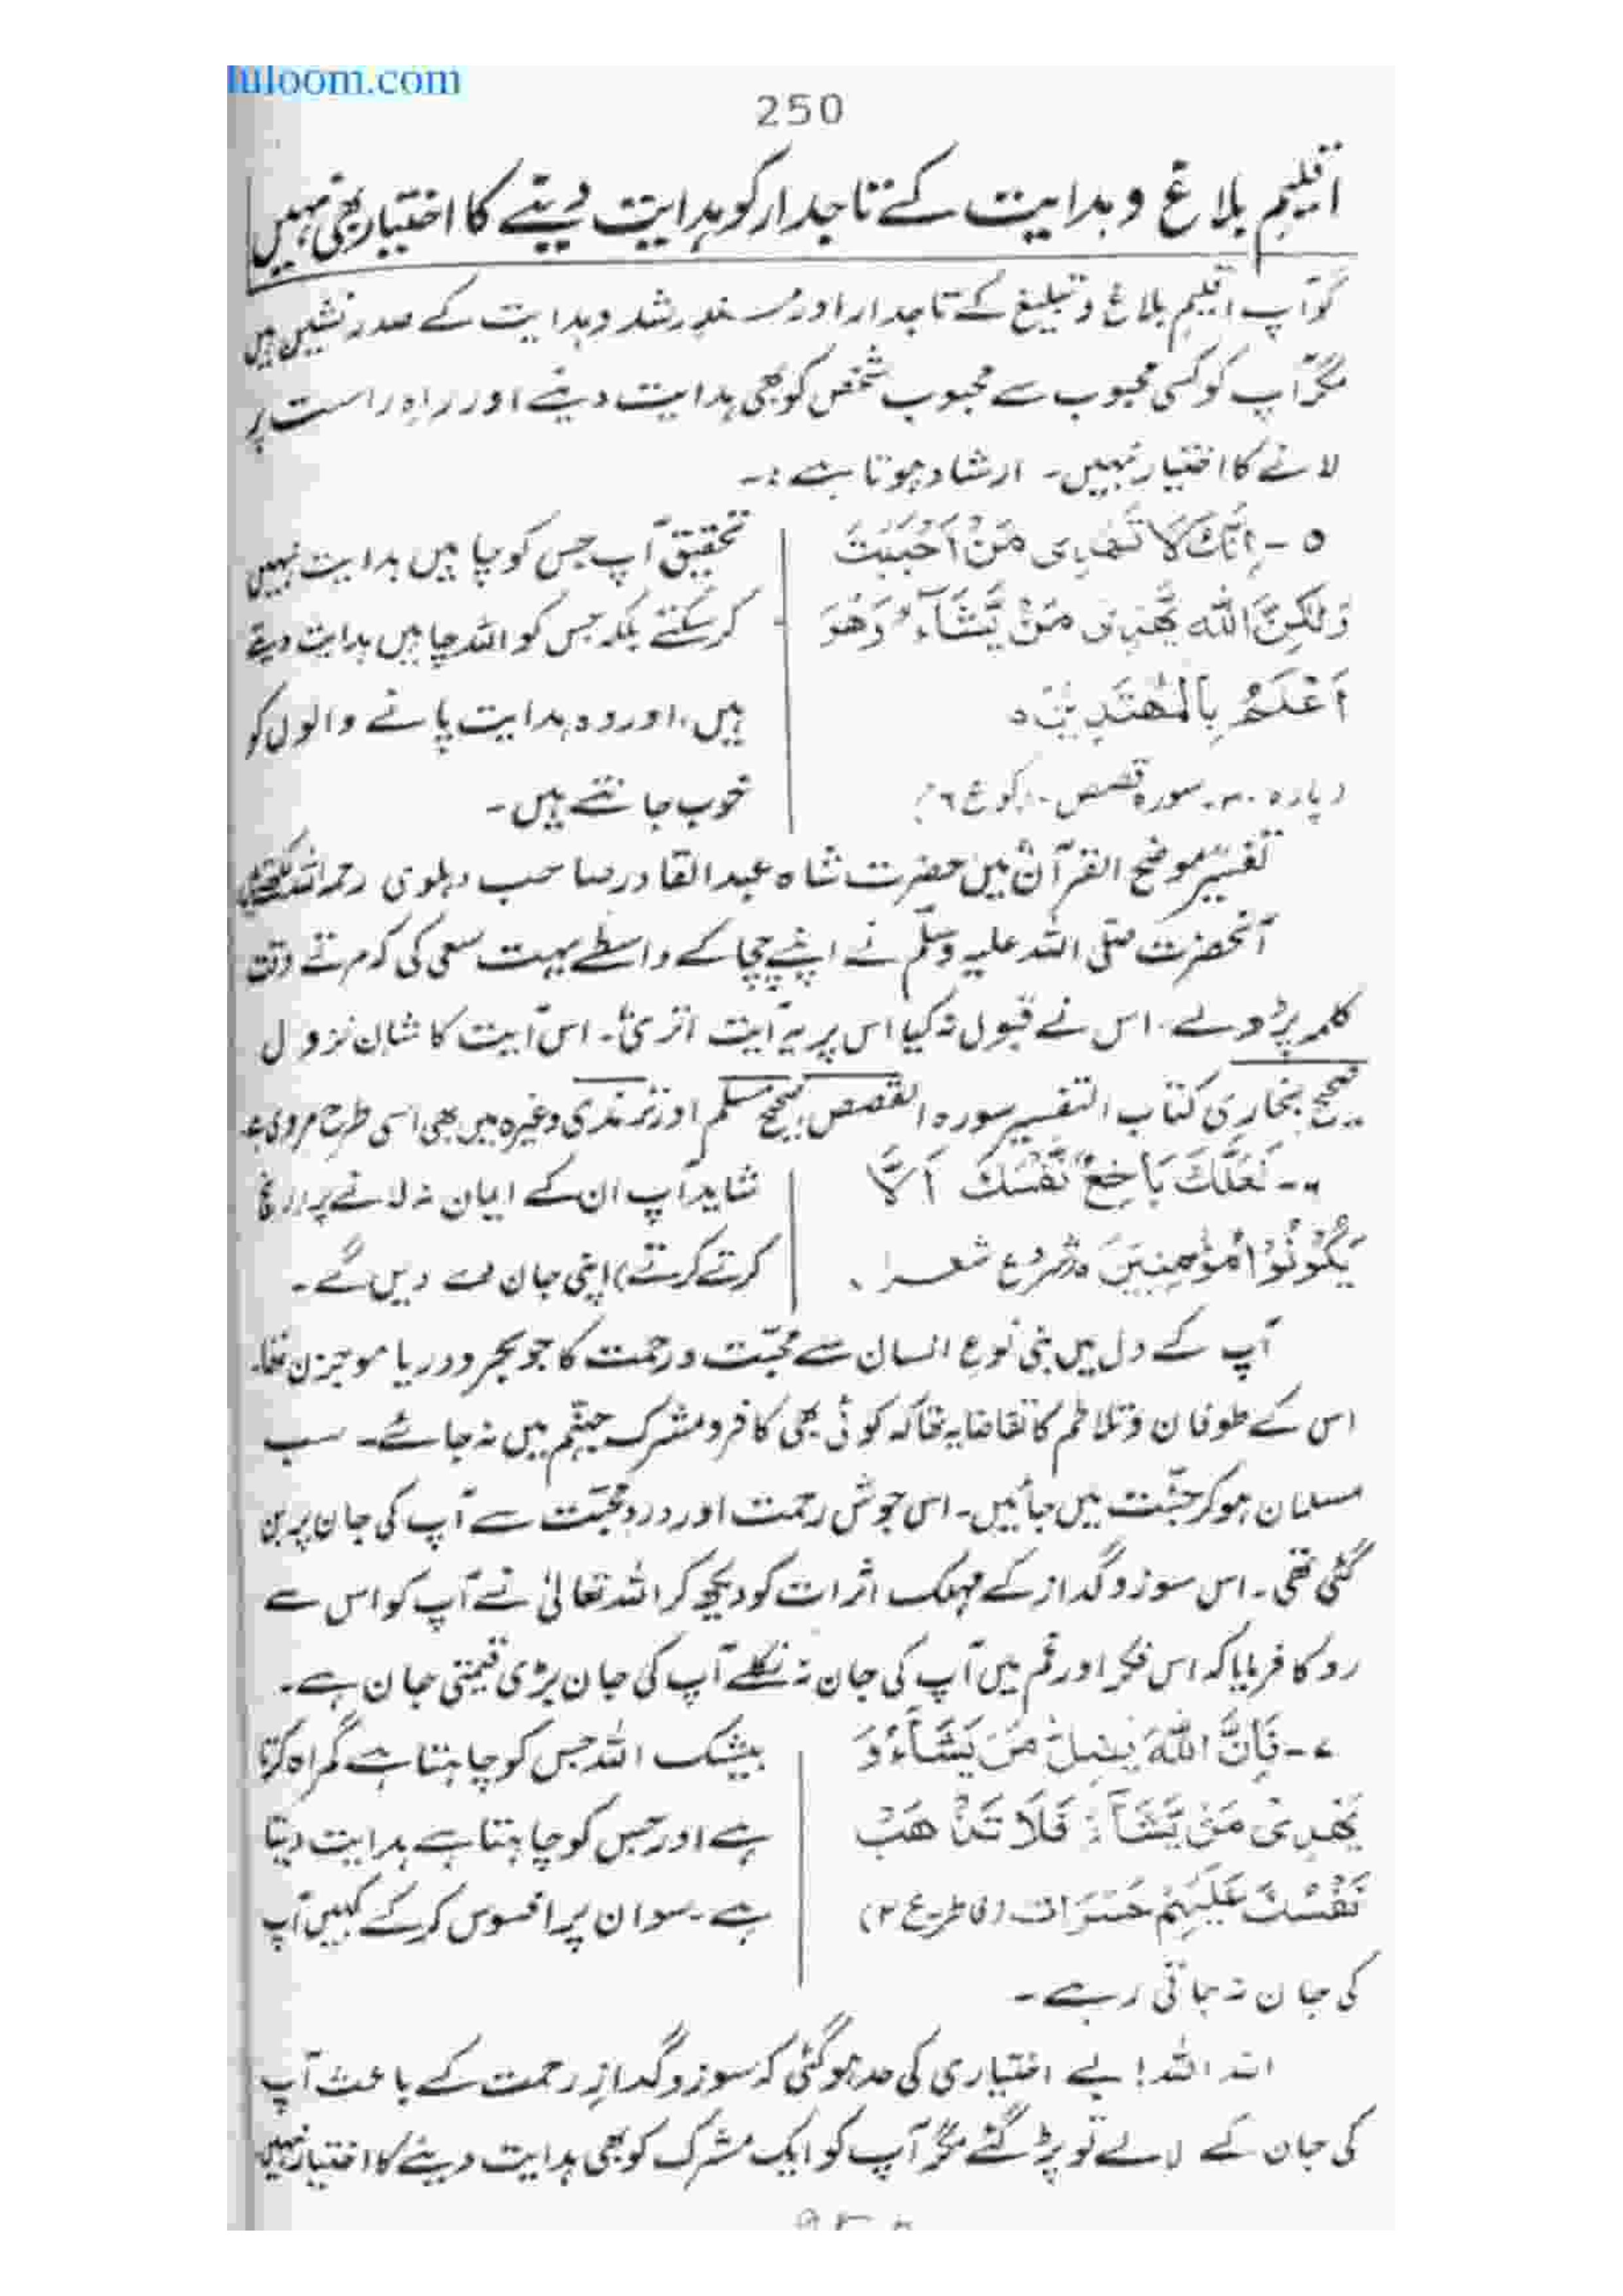 luloom.com
250
اقلیمِ بلاغ و ہدایت کے تاجدار کو ہدایت دینے کا اختیار بھی نہیں
گو آپ اقلیمِ بلاغ و تبلیغ کے تاجدار اور مسندِ رشد و ہدایت کے صدر نشین ہیں
مگر آپ کو کسی محبوب سے محبوب شخص کو بھی ہدایت دینے اور راہِ راست پر
لانے کا اختیار نہیں۔ ارشاد ہوتا ہے :۔
۵ - اِنَّكَ لَا تَهْدِى مَنْ اَحْبَبْتَ
وَلٰكِنَّ اللّٰه يَّهْدِى مَنْ يَّشَآءُ وَهُوَ
اَعْلَمُ بِالْمُهْتَدِيْنَ ہ
(پارہ ۲۰۔ سورہ قصص۔ رکوع ۶)
تحقیق آپ جس کو چاہیں ہدایت نہیں
کر سکتے بلکہ جس کو اللہ چاہیں ہدایت دیتے
ہیں، اور وہ ہدایت پانے والوں کو
خوب جانتے ہیں۔
تفسیر موضح القرآن میں حضرت شاہ عبدالقادر صاحب دہلوی رحمہ اللہ لکھتے ہیں
آنحضرت صلی اللہ علیہ وسلم نے اپنے چچا کے واسطے بہت سعی کی کہ مرتے وقت
کلمہ پڑھ لے۔ اس نے قبول نہ کیا اس پر یہ آیت اتری۔ اس آیت کا شانِ نزول
صحیح بخاری کتاب التفسیر سورہ القصص، صحیح مسلم اور ترمذی وغیرہ میں بھی اسی طرح مروی ہے۔
۶- لَعَلَّكَ بَاخِعٌ نَّفْسَكَ اَلَّا
يَكُوْنُوْا مُؤْمِنِيْنَ ہ شروع شعراء
شاید آپ ان کے ایمان نہ لانے پر (رنج
کرتے کرتے) اپنی جان دے دیں گے۔
آپ کے دل میں بنی نوعِ انسان سے محبّت و رحمت کا جو بحر و دریا موجزن تھا۔
اس کے طوفان و تلاطم کا تقاضا یہ تھا کہ کوئی بھی کافر و مشرک جہنّم میں نہ جائے۔ سب
مسلمان ہو کر جنّت میں جائیں۔ اسی جوشِ رحمت اور دردِ محبّت سے آپ کی جان پر بن
گئی تھی۔ اس سوز و گداز کے مہلک اثرات کو دیکھ کر اللہ تعالیٰ نے آپ کو اس سے
روکا فرمایا کہ اس فکر اور غم میں آپ کی جان نہ نکلے آپ کی جان بڑی قیمتی جان ہے۔
۷- فَاِنَّ اللّٰهَ يُضِلُّ مَنْ يَّشَآءُ وَ
يَهْدِىْ مَنْ يَّشَآءُ فَلَا تَذْهَبْ
نَفْسُكَ عَلَيْهِمْ حَسَرَات (فاطر۔ ع ۲)
بیشک اللہ جس کو چاہتا ہے گمراہ کرتا
ہے اور جس کو چاہتا ہے ہدایت دیتا
ہے۔ سو ان پر افسوس کر کے کہیں آپ
کی جان نہ جاتی رہے۔
اللہ اللہ! بے اختیاری کی حد ہو گئی کہ سوز و گدازِ رحمت کے باعث آپ
کی جان کے لالے تو پڑ گئے مگر آپ کو ایک مشرک کو بھی ہدایت دینے کا اختیار نہیں